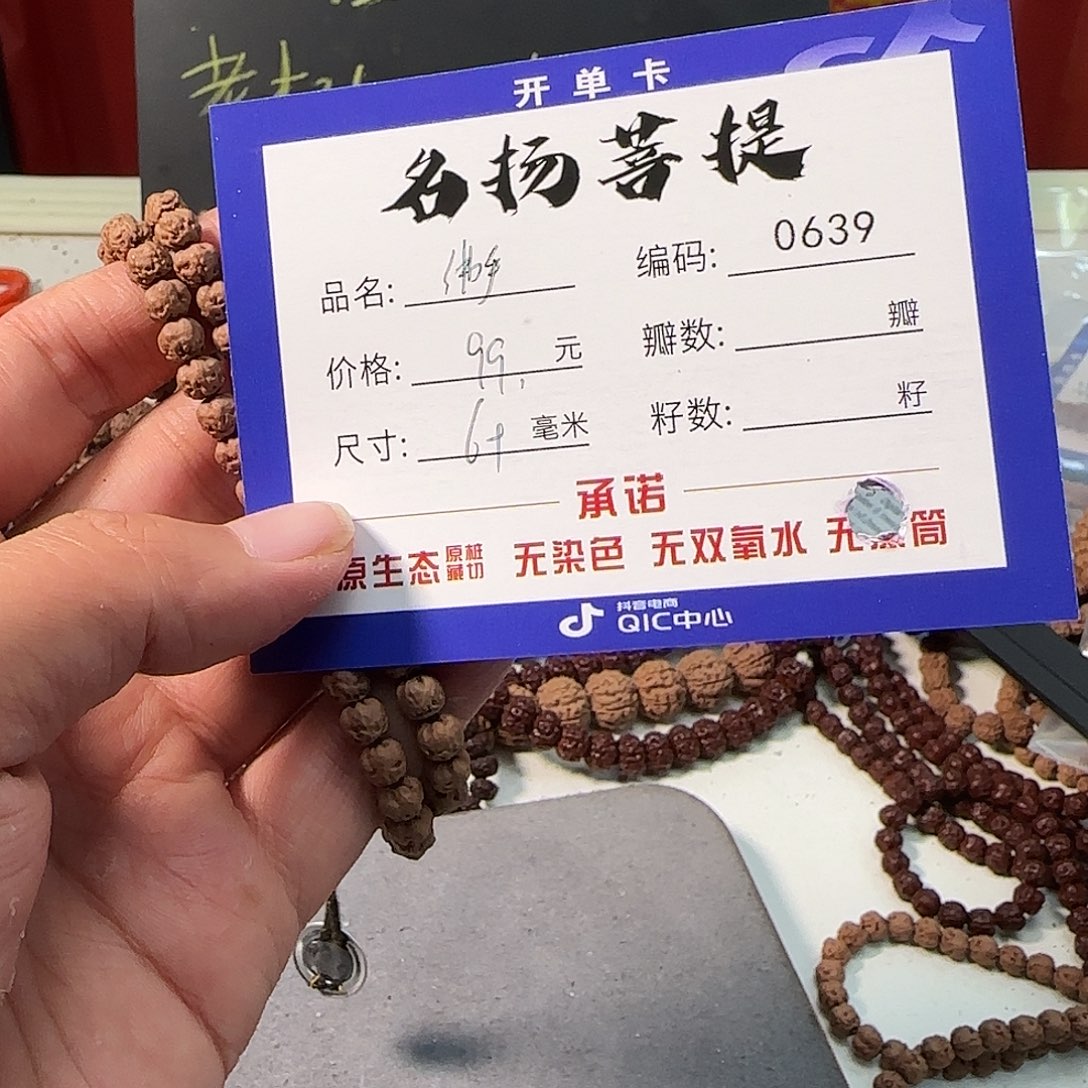 老
开单卡
名扬菩提
品名: 佛手 编码: 0639
价格: 99. 元 瓣数: 瓣
尺寸: 6+ 毫米 籽数: 籽
承诺
原生态 原桩藏切 无染色 无双氧水 无滚筒
抖音电商
QIC中心